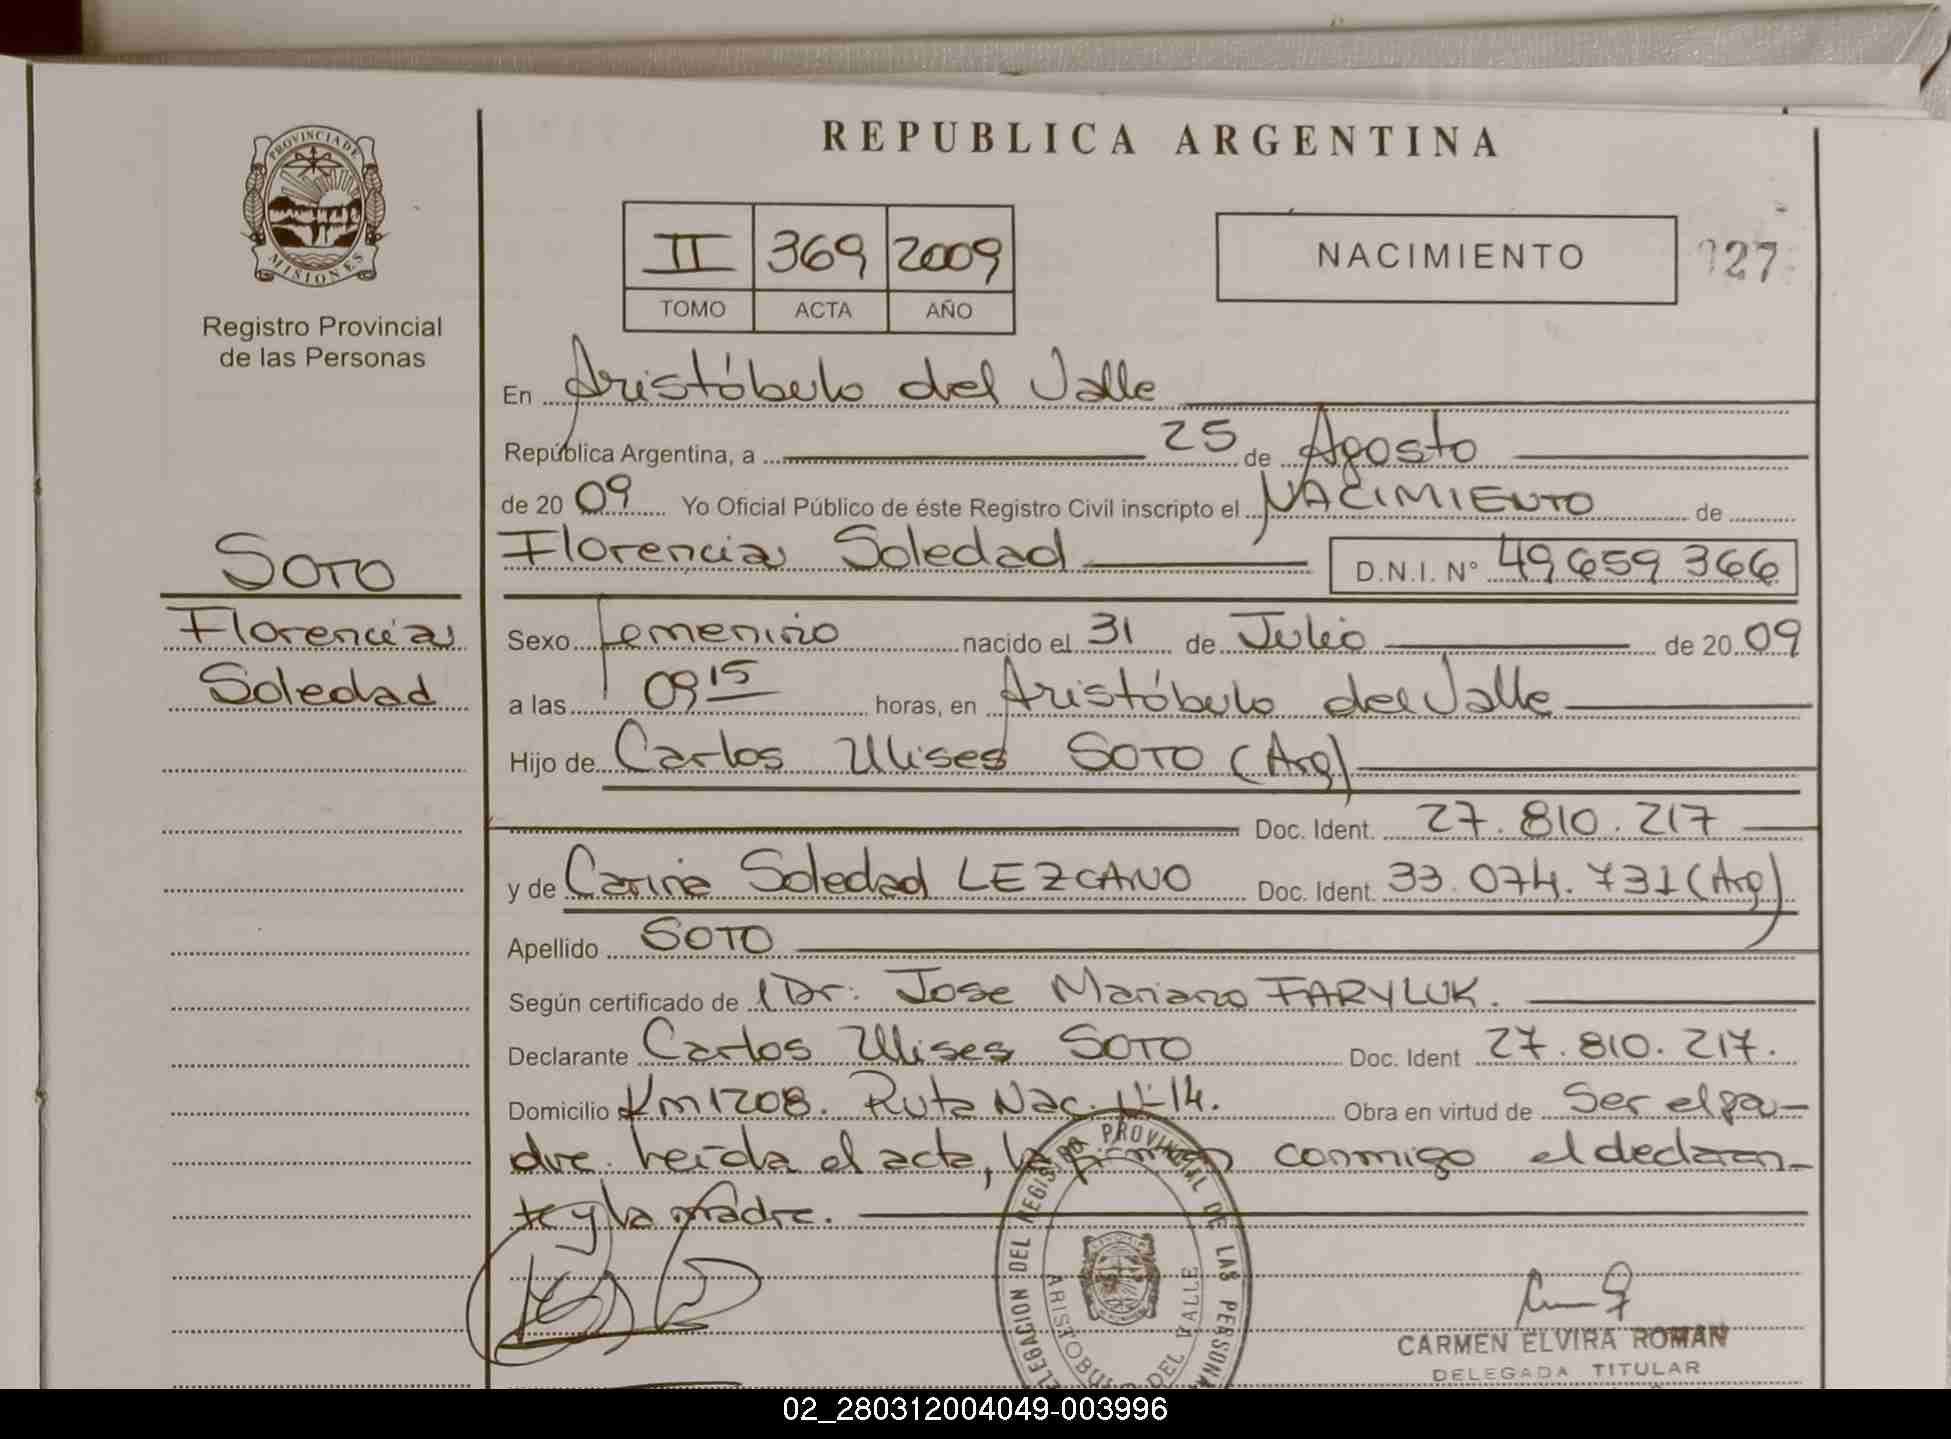 PROVINCIA DE
MISIONES
Registro Provincial
de las Personas
REPUBLICA ARGENTINA
II 369 2009
TOMO ACTA AÑO
NACIMIENTO 127
En Aristóbulo del Valle
República Argentina, a 25 de Agosto
de 20 09 Yo Oficial Público de éste Registro Civil inscripto el NACIMIENTO de
Florencia Soledad D.N.I. N° 49659366
SOTO
Florencia
Soledad
Sexo femenino nacido el 31 de Julio de 20 09
a las 09 15 horas, en Aristóbulo del Valle
Hijo de Carlos Ulises SOTO (Arg)
Doc. Ident. 27.810.217
y de Carina Soledad LEZCANO Doc. Ident. 33.074.731 (Arg)
Apellido SOTO
Según certificado de Dr. Jose Mariano FARYLUK.
Declarante Carlos Ulises SOTO Doc. Ident 27.810.217.
Domicilio Km 1208. Ruta Nac. N° 14. Obra en virtud de Ser el pa-
dre. Leída el acta, la firman conmigo el declaran-
te y la madre.
DELEGACION DEL REGISTRO PROVINCIAL DE LAS PERSONAS
ARISTOBULO DEL VALLE
CARMEN ELVIRA ROMAN
DELEGADA TITULAR
02_280312004049-003996